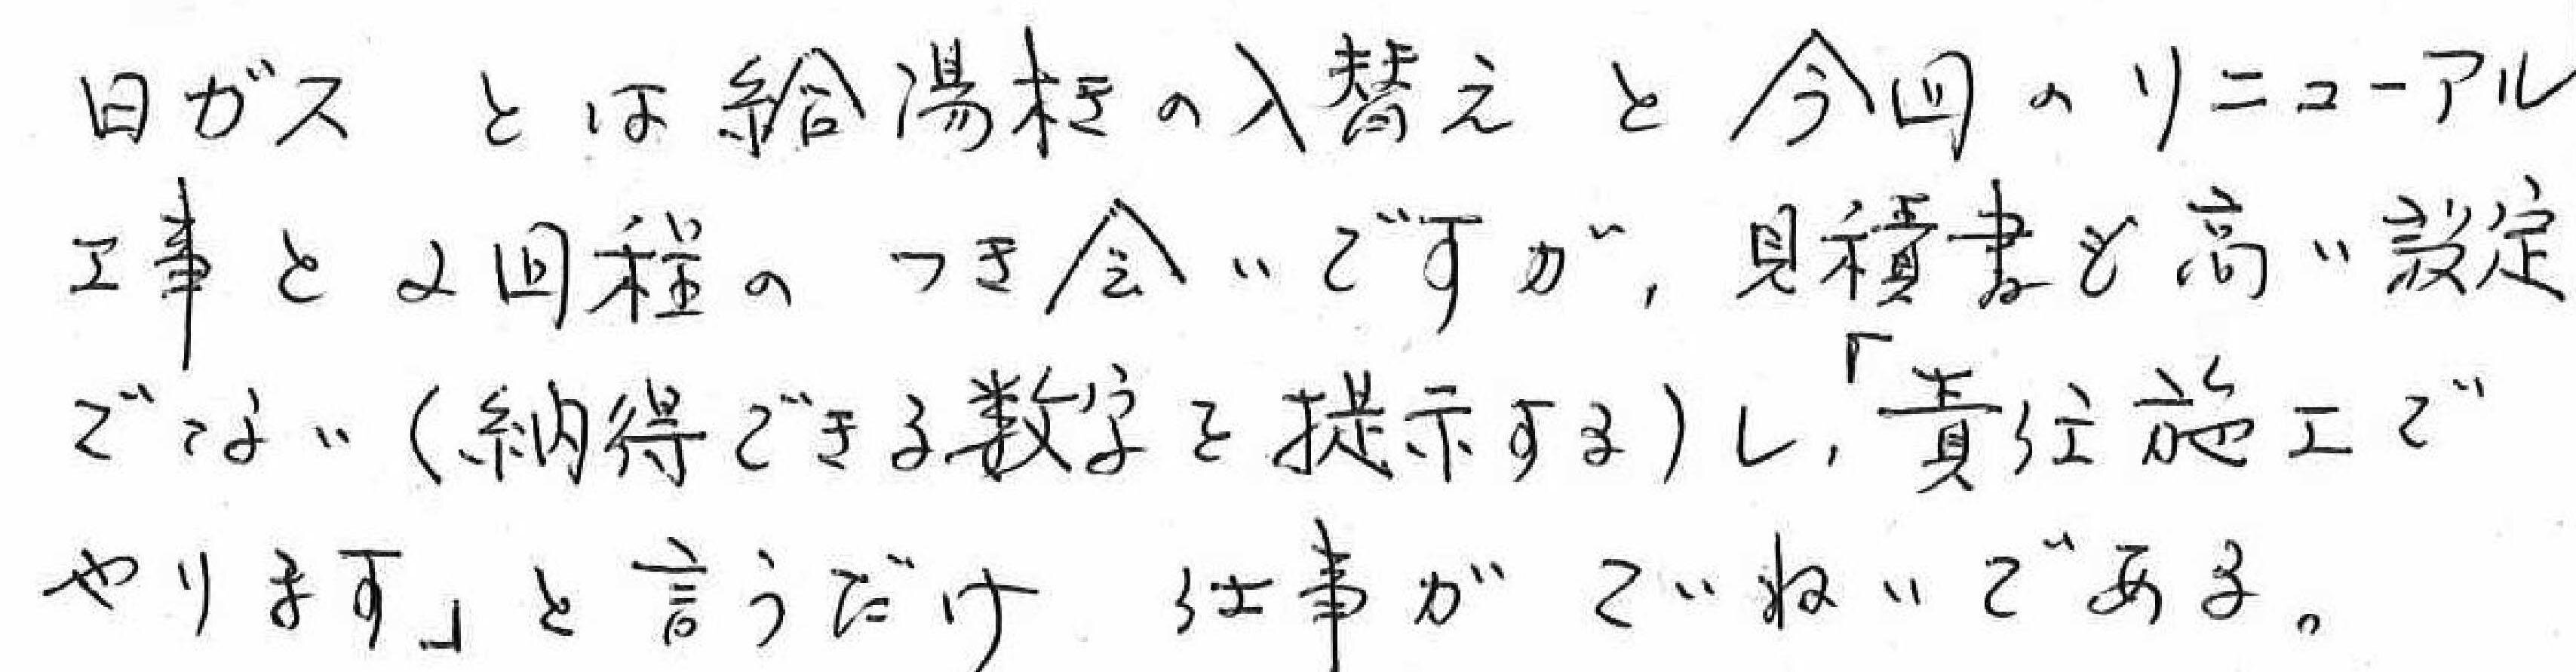 日ガスとは給湯機の入替えと今回のリニューアル
工事と2回程のつき会いですが、見積書も高い設定
でない(納得できる数字を提示する)し、「責任施工で
やります」と言うだけ仕事がていねいである。